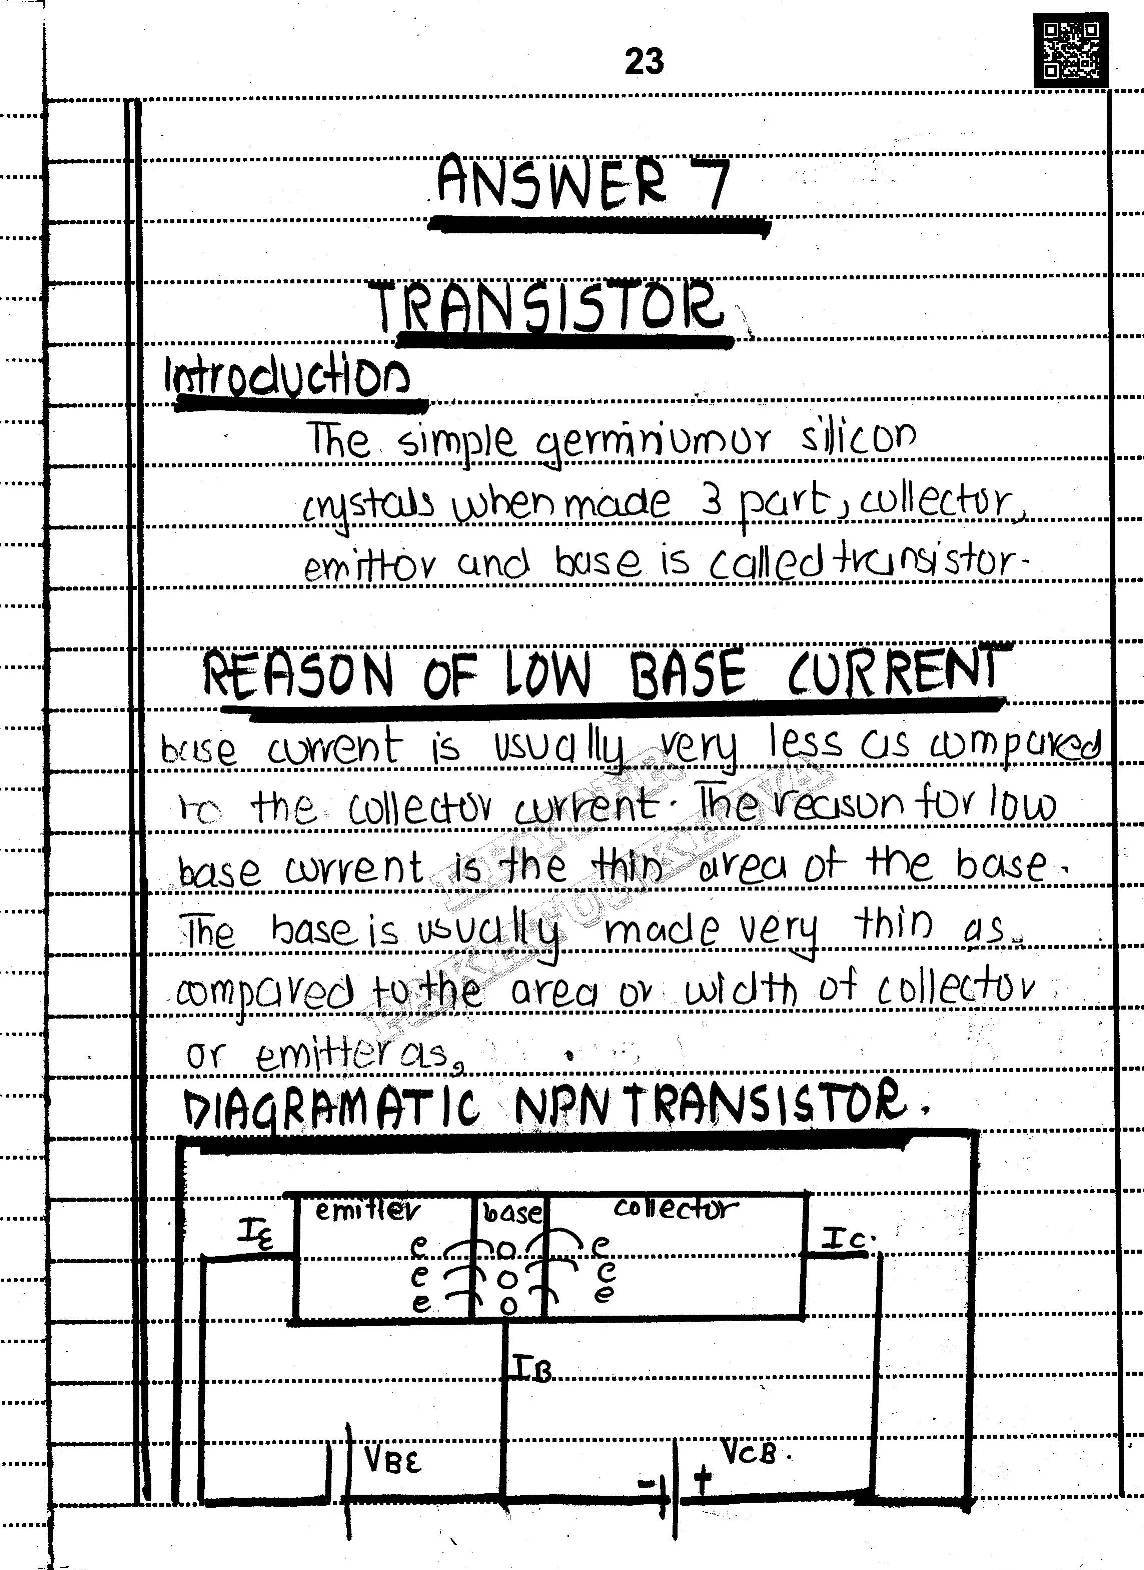 23
ANSWER 7
TRANSISTOR
Introduction
The simple germiniumor silicon
crystals when made 3 part, collector,
emittor and base is called transistor.
REASON OF LOW BASE CURRENT
base current is usually very less as compared
to the collector current. The reason for low
base current is the thin area of the base.
The base is usually made very thin as
compared to the area or width of collector
or emitter as,
DIAGRAMATIC NPN TRANSISTOR.
emitter base collector
IE IC.
e o e
e o e
e o e
IB
VBE VCB.
- +